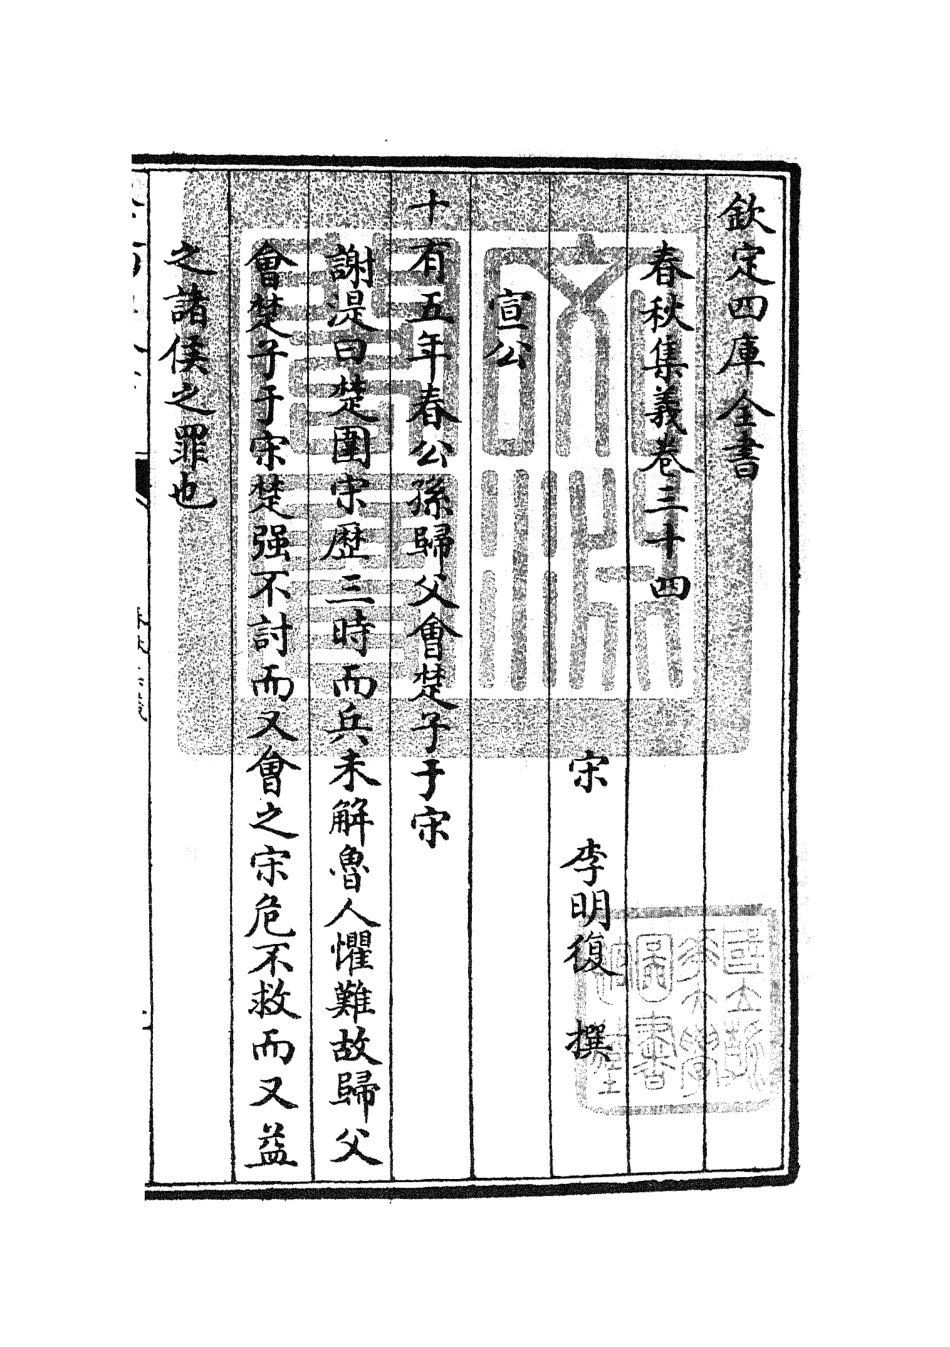 欽定四庫全書
春秋集義卷三十四
宋 李明復 撰
宣公
十有五年春公孫歸父會楚子于宋
謝湜曰楚圍宋歴三時而兵未解魯人懼難故歸父
會楚子于宋楚强不討而又會之宋危不救而又益
之諸侯之罪也